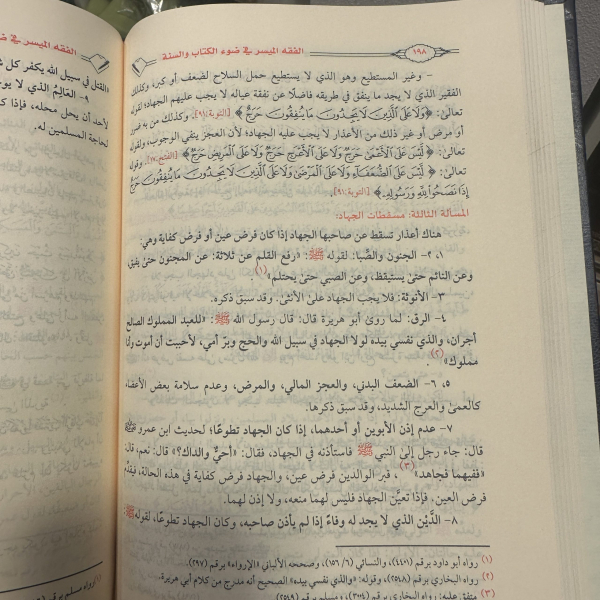 ١٩٨
الفقه الميسر في ضوء الكتاب والسنة
- وغير المستطيع وهو الذي لا يستطيع حمل السلاح لضعف أو كبر، وكذلك
الفقير الذي لا يجد ما ينفق في طريقه فاضلًا عن نفقة عياله لا يجب عليهم الجهاد؛ لقوله
تعالى: ﴿وَلَا عَلَى الَّذِينَ لَا يَجِدُونَ مَا يُنفِقُونَ حَرَجٌ﴾ [التوبة:٩١]. وكذلك من به ضرر
أو مرض أو غير ذلك من الأعذار لا يجب عليه الجهاد؛ لأن العجز ينفي الوجوب، ولقوله
تعالى: ﴿لَيْسَ عَلَى الْأَعْمَىٰ حَرَجٌ وَلَا عَلَى الْأَعْرَجِ حَرَجٌ وَلَا عَلَى الْمَرِيضِ حَرَجٌ﴾ [الفتح:١٧]، وقوله
تعالى: ﴿لَيْسَ عَلَى الضُّعَفَاءِ وَلَا عَلَى الْمَرْضَىٰ وَلَا عَلَى الَّذِينَ لَا يَجِدُونَ مَا يُنفِقُونَ حَرَجٌ
إِذَا نَصَحُوا لِلَّهِ وَرَسُولِهِ﴾ [التوبة:٩١].
المسألة الثالثة: مسقطات الجهاد:
هناك أعذار تسقط عن صاحبها الجهاد إذا كان فرض عين أو فرض كفاية وهي:
١، ٢- الجنون والصِّبا: لقوله ﷺ: «رفع القلم عن ثلاثة: عن المجنون حتى يفيق،
وعن النائم حتى يستيقظ، وعن الصبي حتى يحتلم» (١)
٣- الأنوثة: فلا يجب الجهاد على الأنثى. وقد سبق ذكره.
٤- الرق: لما روى أبو هريرة قال: قال رسول الله ﷺ: «للعبد المملوك الصالح
أجران، والذي نفسي بيده لولا الجهاد في سبيل الله والحج وبرّ أمي، لأحببت أن أموت وأنا
مملوك» (٢).
٥، ٦- الضعف البدني، والعجز المالي، والمرض، وعدم سلامة بعض الأعضاء
كالعمى والعرج الشديد، وقد سبق ذكرها.
٧- عدم إذن الأبوين أو أحدهما، إذا كان الجهاد تطوعًا؛ لحديث ابن عمرو
قال: جاء رجل إلى النبي ﷺ فاستأذنه في الجهاد، فقال: «أحيٌّ والداك؟» قال: نعم، قال:
«ففيهما فجاهد» (٣)، فبر الوالدين فرض عين، والجهاد فرض كفاية في هذه الحالة، فيقدَّم
فرض العين. فإذا تعيَّن الجهاد فليس لهما منعه، ولا إذن لهما.
٨- الدَّيْن الذي لا يجد له وفاءً إذا لم يأذن صاحبه، وكان الجهاد تطوعًا، لقوله ﷺ:
(١) رواه أبو داود برقم (٤٤٠١)، والنسائي (٦/ ١٥٦)، وصححه الألباني «الإرواء» برقم (٢٩٧).
(٢) رواه البخاري برقم (٢٥٤٨)، وقوله: «والذي نفسي بيده» الصحيح أنه مدرج من كلام أبي هريرة.
(٣) متفق عليه: رواه البخاري برقم (٣٠٠٤)، ومسلم برقم (٢٥٤٩).
الفقه الميسر في ض
«القتل في سبيل الله يكفر كل ش
٩- العَالِمُ الذي لا يو
لأحد أن يحل محله، فإذا كا
لحاجة المسلمين له.
رواه مسلم برقم